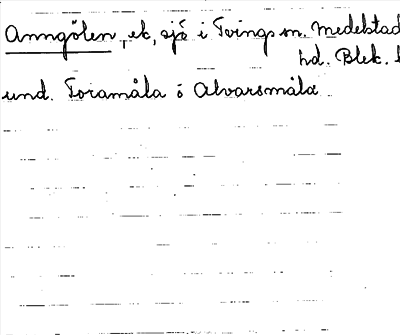 Anngölen, ek, sjö i Tvings sn. Medelstad
hd. Blek. l
und. Toramåla o Alvarsmåla